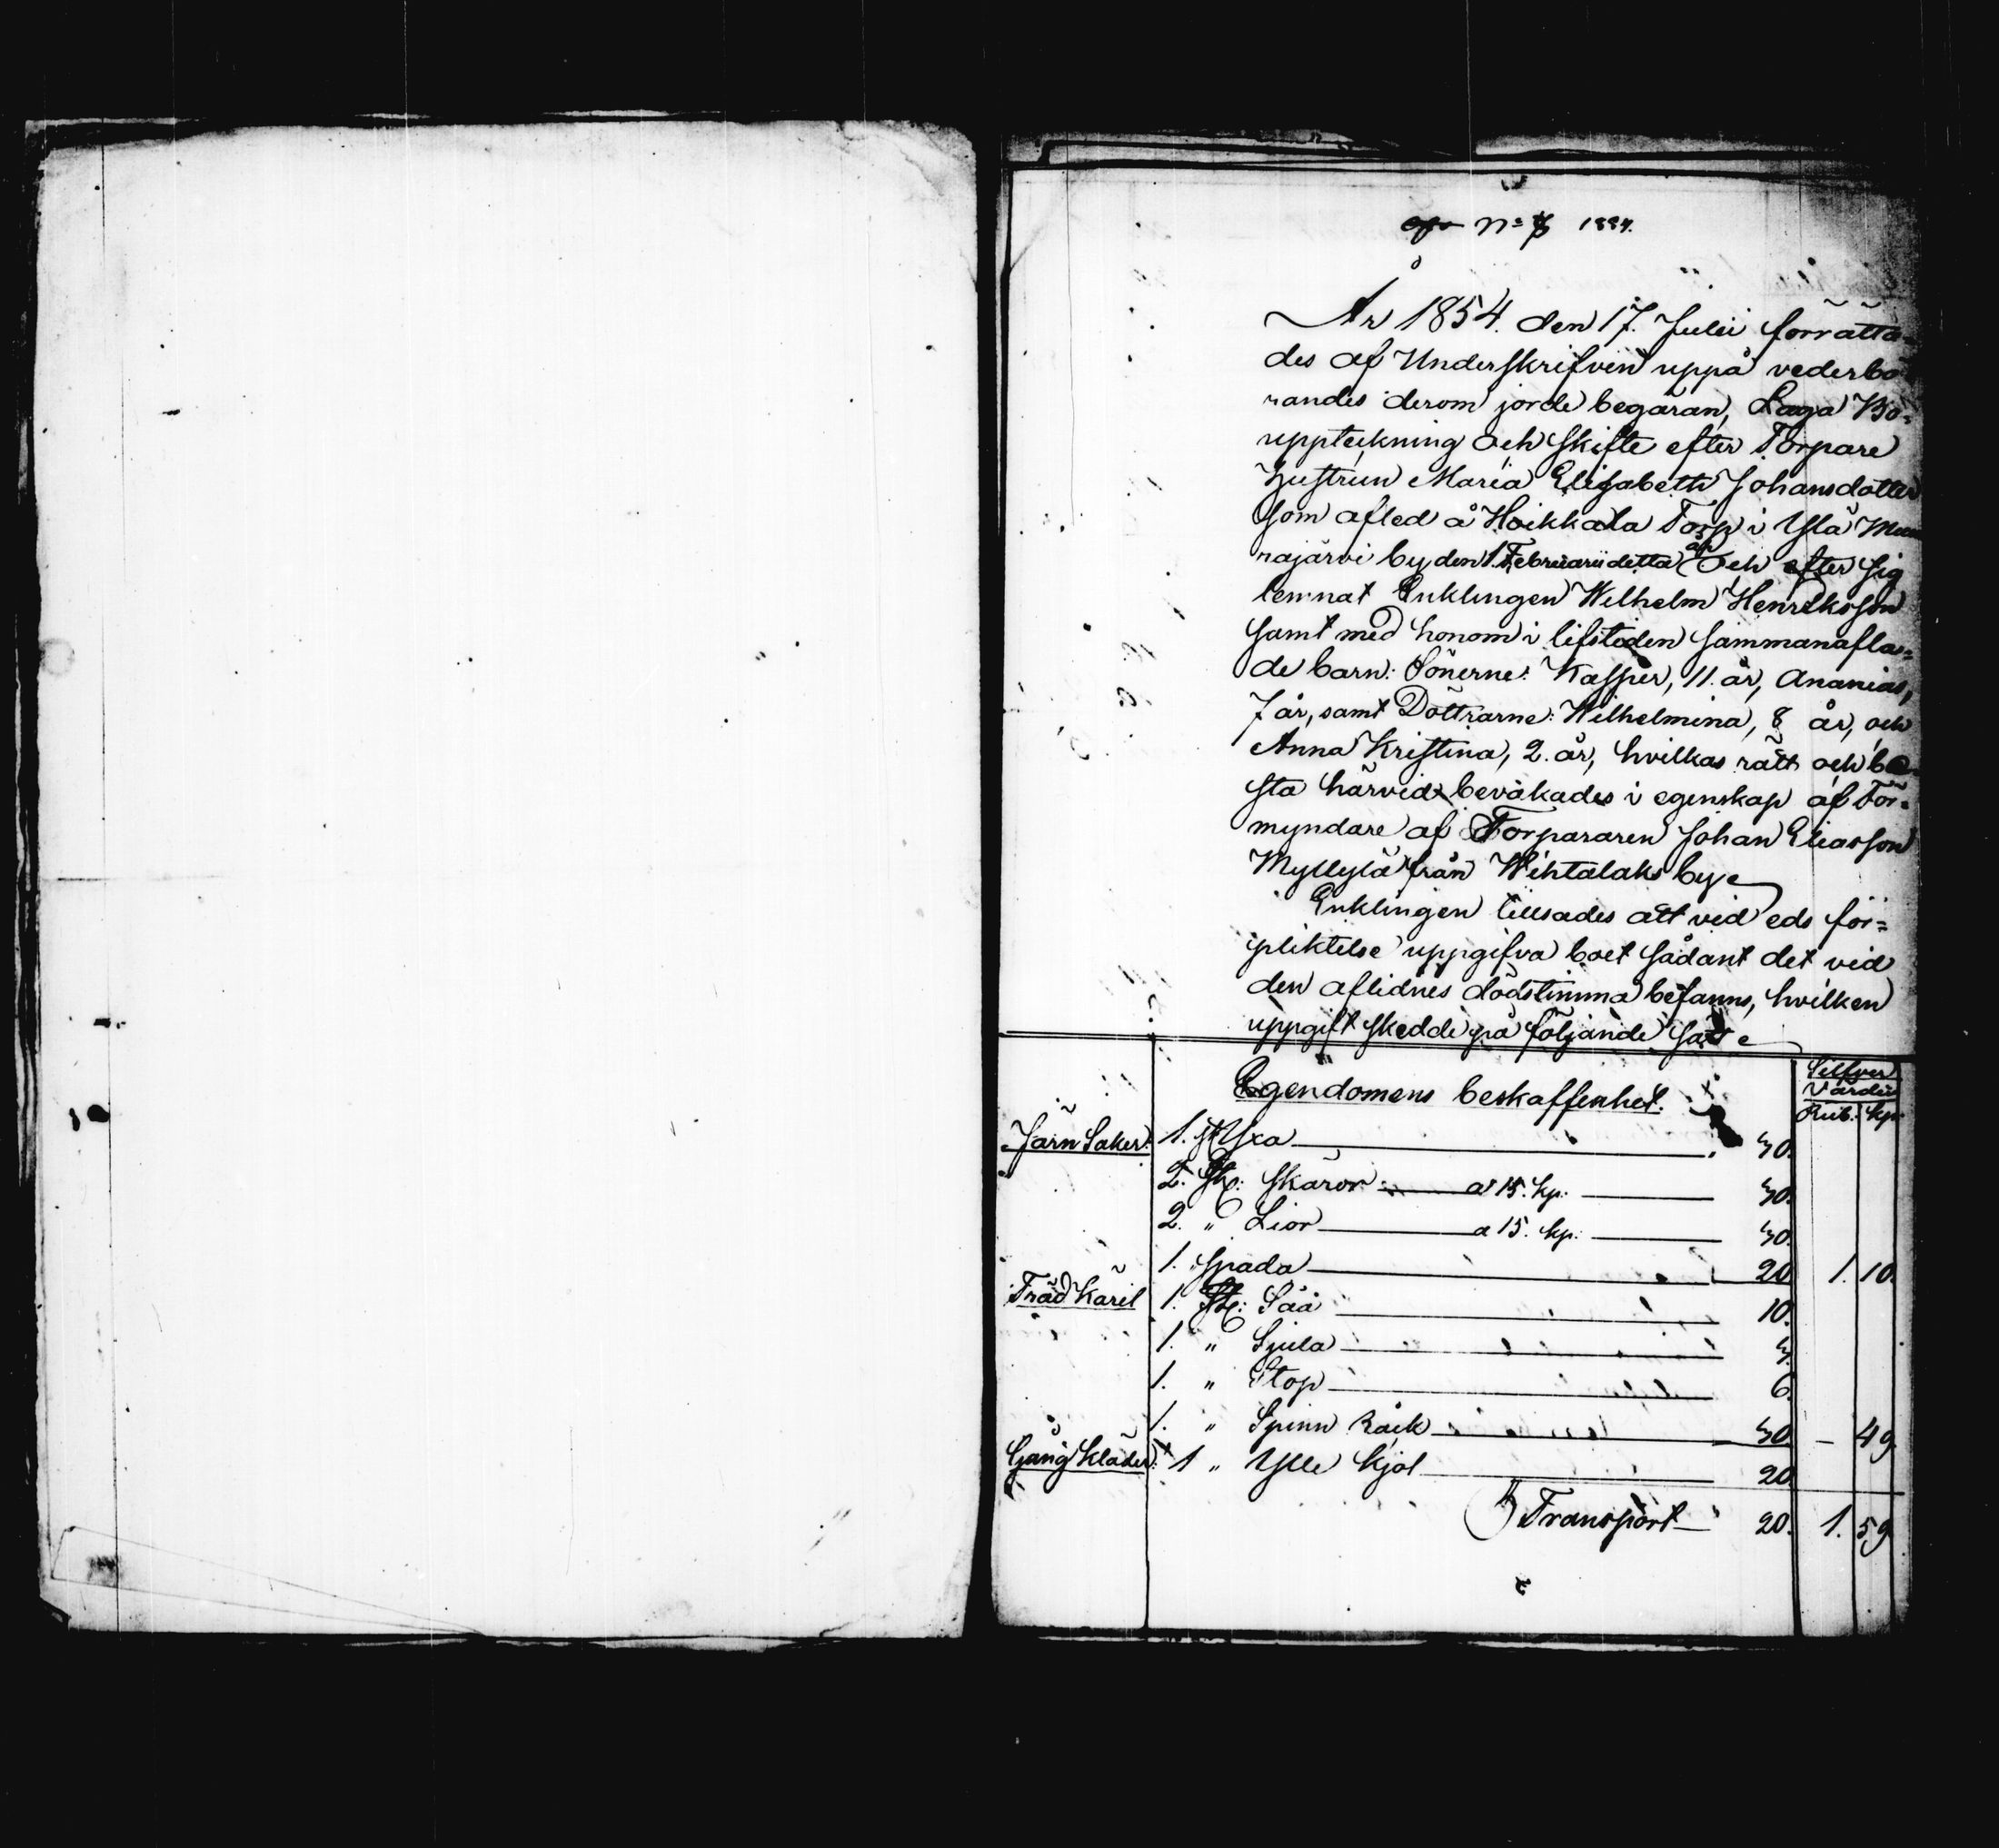 No 8 1854.
År 1854. den 17. Julii förrätta=
des af Underskrifven uppå vederbö
randes derom jorde begäran, Laga Bo=
uppteckning och skifte efter Torpare
Hustrun Maria Elisabeth Johansdotter
som afled å Hoikkala Torp i Ylä Mun
najärvi by den 1. Februarii detta år Och efter sig
lemnat Enklingen Wilhelm Henriksson
samt med honom i lifstiden sammanafla=
de barn: Sönerne: Kasper, 11. år, Ananias,
7 år, samt Döttrarne: Wilhelmina, 8 år, och
Anna Kristina, 2. år, hvilkas rätt och bä
sta härvid bevakades i egenskap af För=
myndare af Torpararen Johan Eliasson
Myllylä från Wihtalaks by
Enklingen tillsades att vid eds för=
pliktelse uppgifva boet sådant det vid
den aflidnes dödstimma befanns, hvilken
uppgift skedde på följande sätt
Egendomens beskaffenhet. Silfver
Värde
Rub. kp.
Järn Saker: 1. st Yxa 30.
2. St: Skäror a 15. kp: 30.
2. " Lior a 15. kp: 30.
1. " Spada 20 1. 10.
Träd Käril 1. St: Så 10.
1. " Spula 3.
1. " Stop 6.
1. " Spinn Råck 30. – 49.
Gång Kläder: 1 " Ylle Kjol 20.
Transport 20. 1. 59